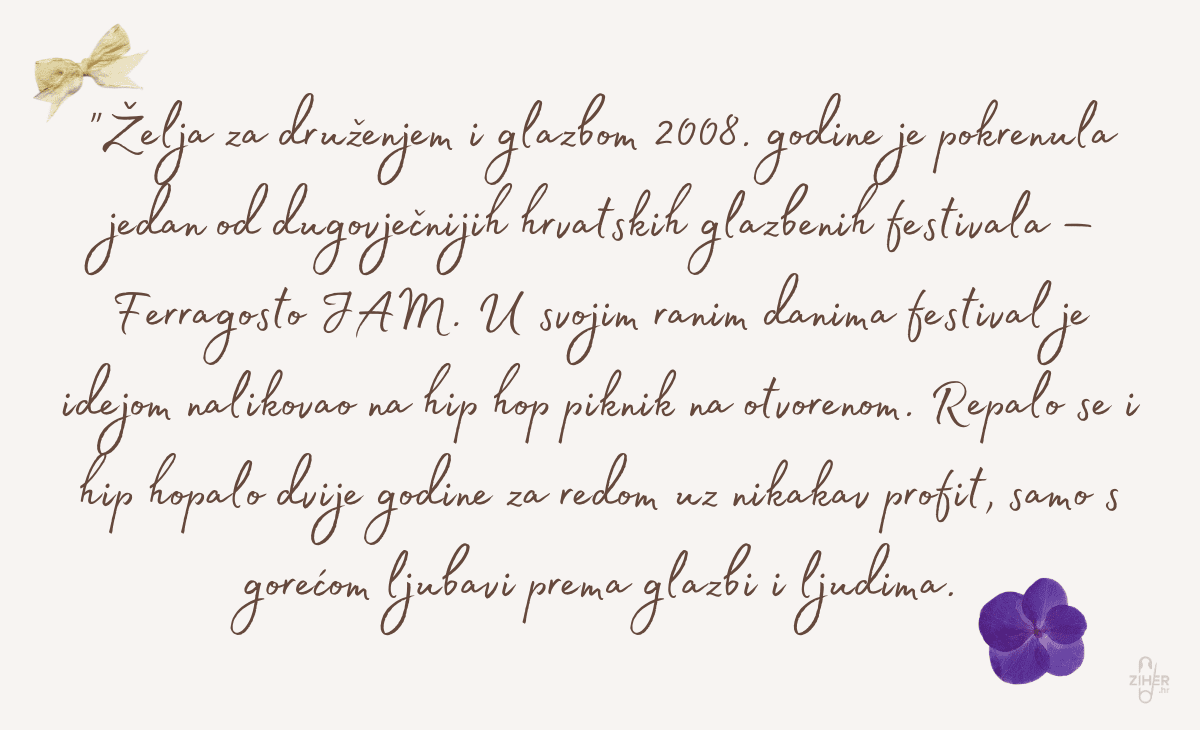 "Želja za druženjem i glazbom 2008. godine je pokrenula
jedan od dugovječnijih hrvatskih glazbenih festivala –
Ferragosto JAM. U svojim ranim danima festival je
idejom nalikovao na hip hop piknik na otvorenom. Repalo se i
hip hopalo dvije godine za redom uz nikakav profit, samo s
gorećom ljubavi prema glazbi i ljudima.
ZIHER
.hr